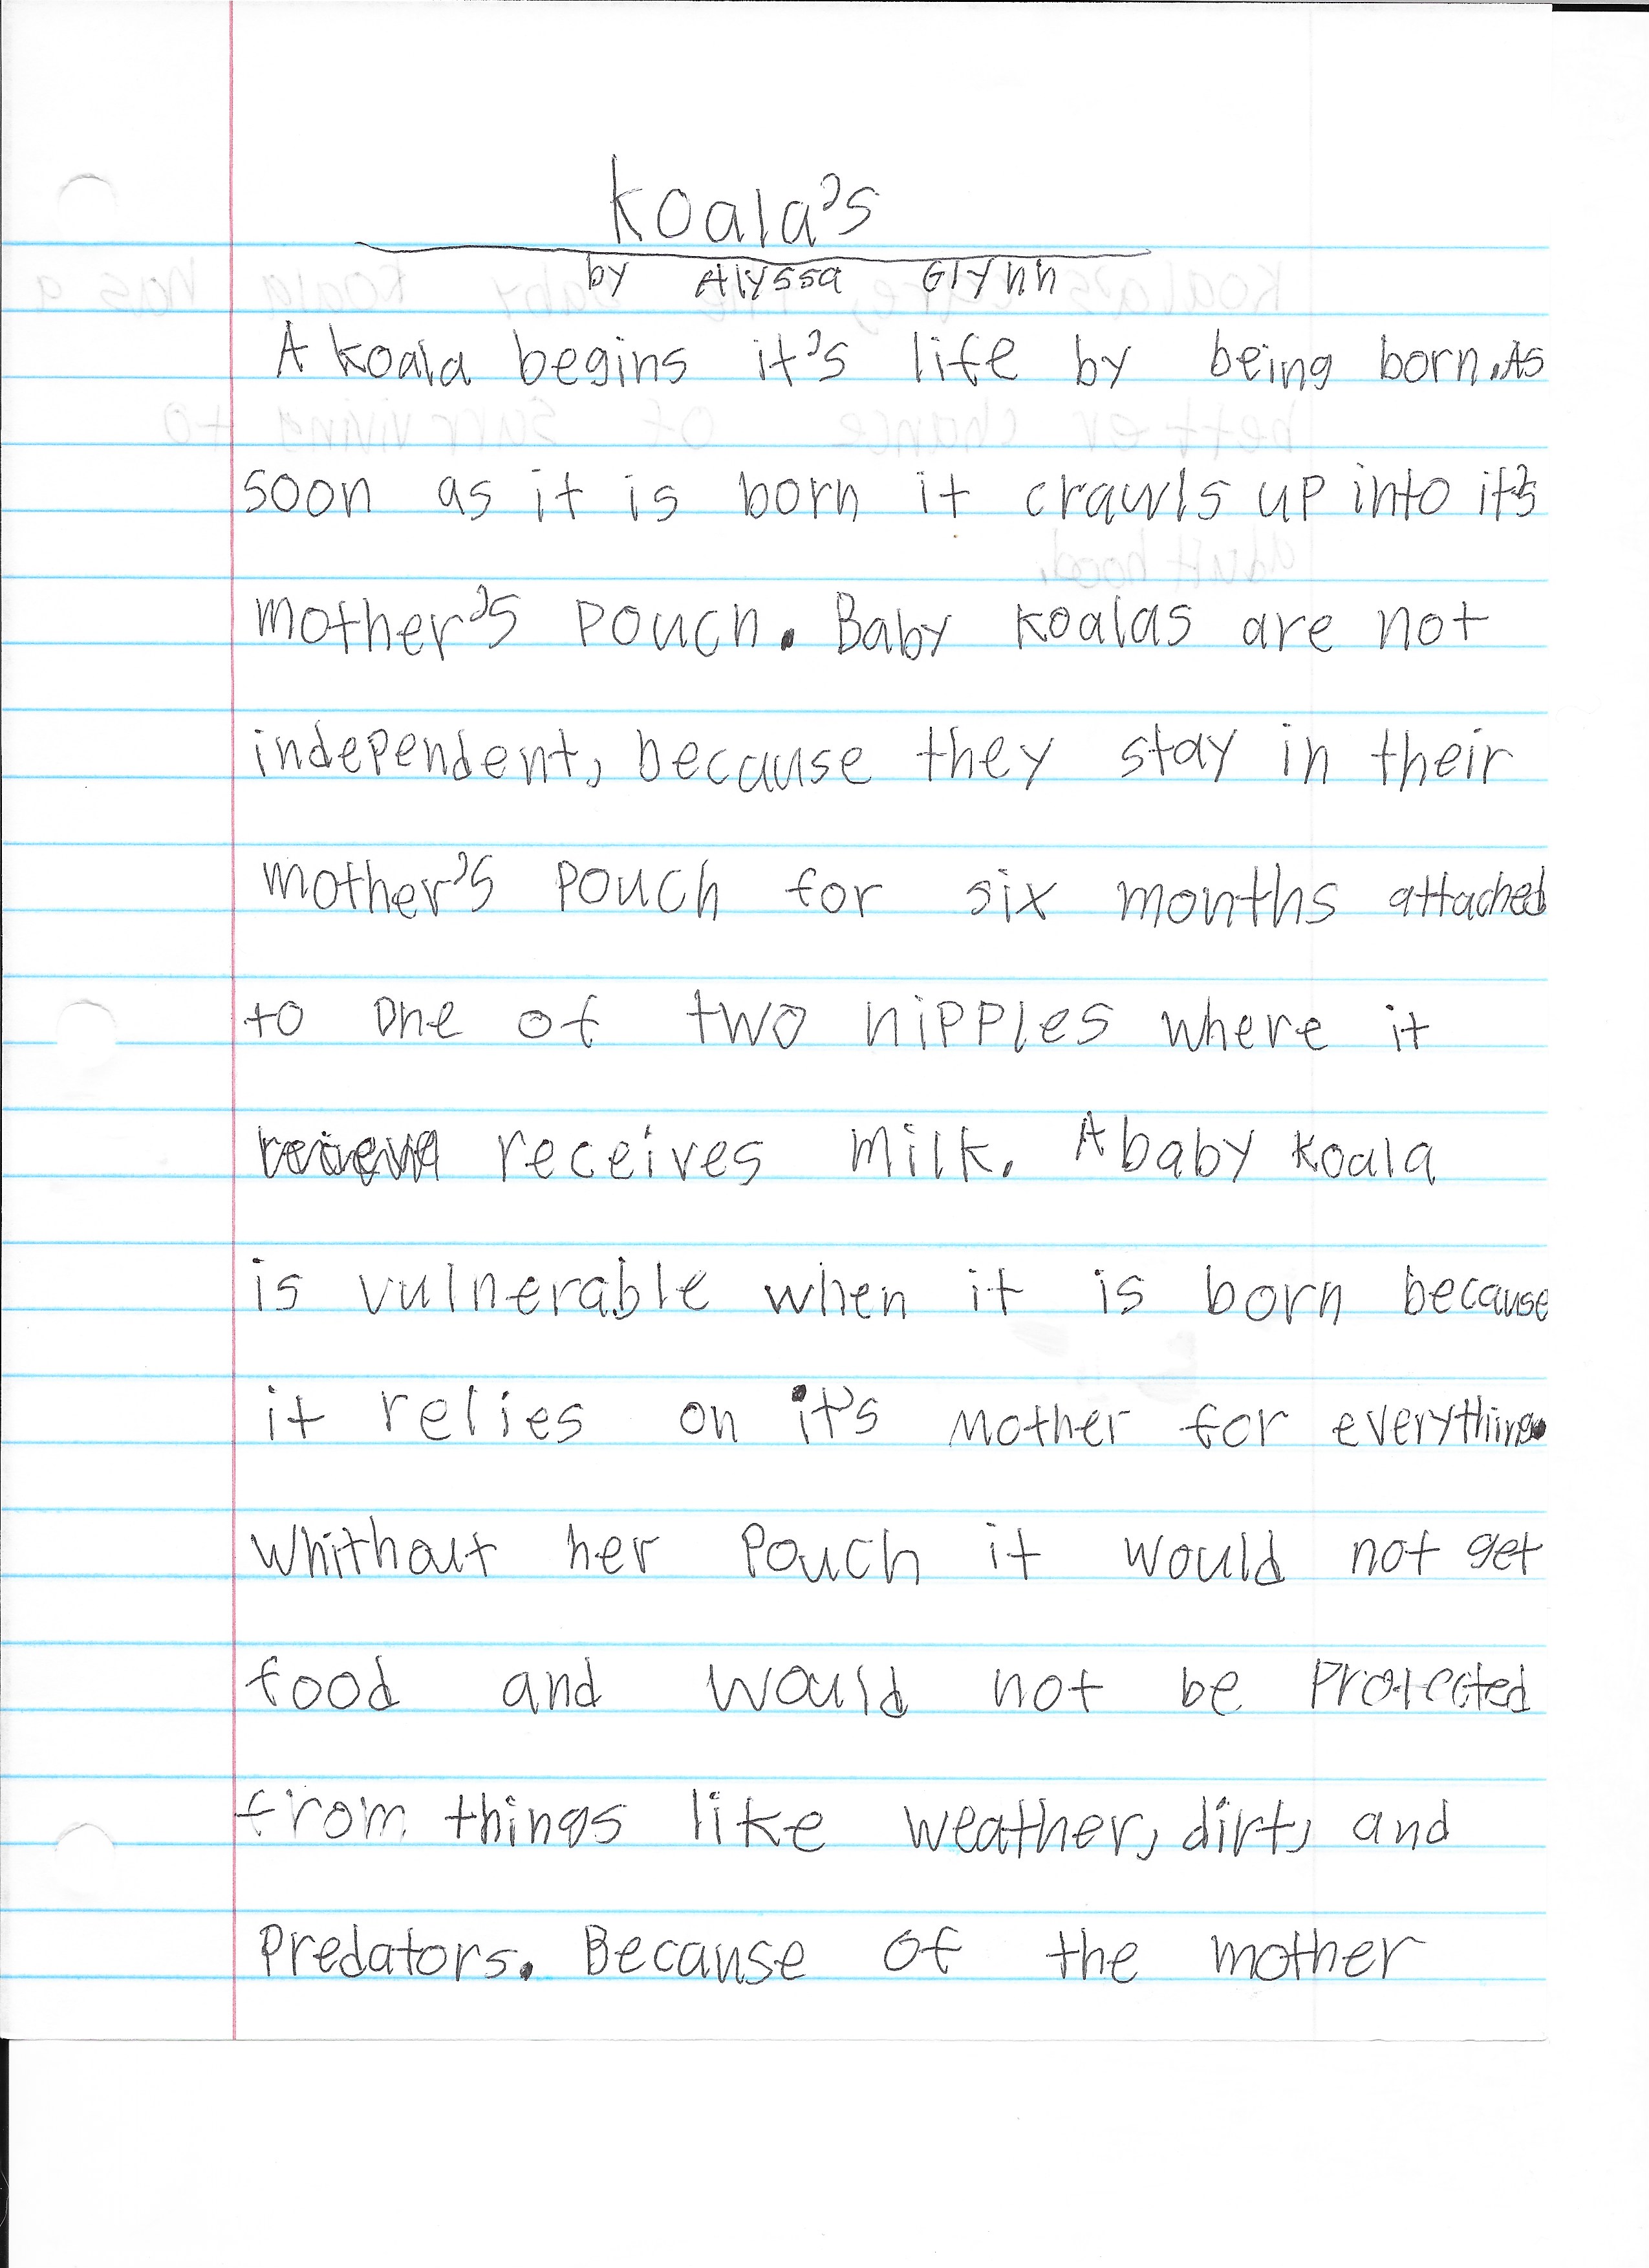 Koala's
by Alyssa Glynn
A koala begins it's life by being born. As
soon as it is born it crawls up into it's
mother's pouch. Baby koalas are not
independent, because they stay in their
mother's pouch for six months attached
to one of two nipples where it
receives milk. A baby koala
is vulnerable when it is born because
it relies on it's mother for everything.
Whithout her pouch it would not get
food and would not be protected
from things like weather, dirt, and
predators. Because of the mother
koala's care, the baby koala has a
better chance of surviving to
adulthood.